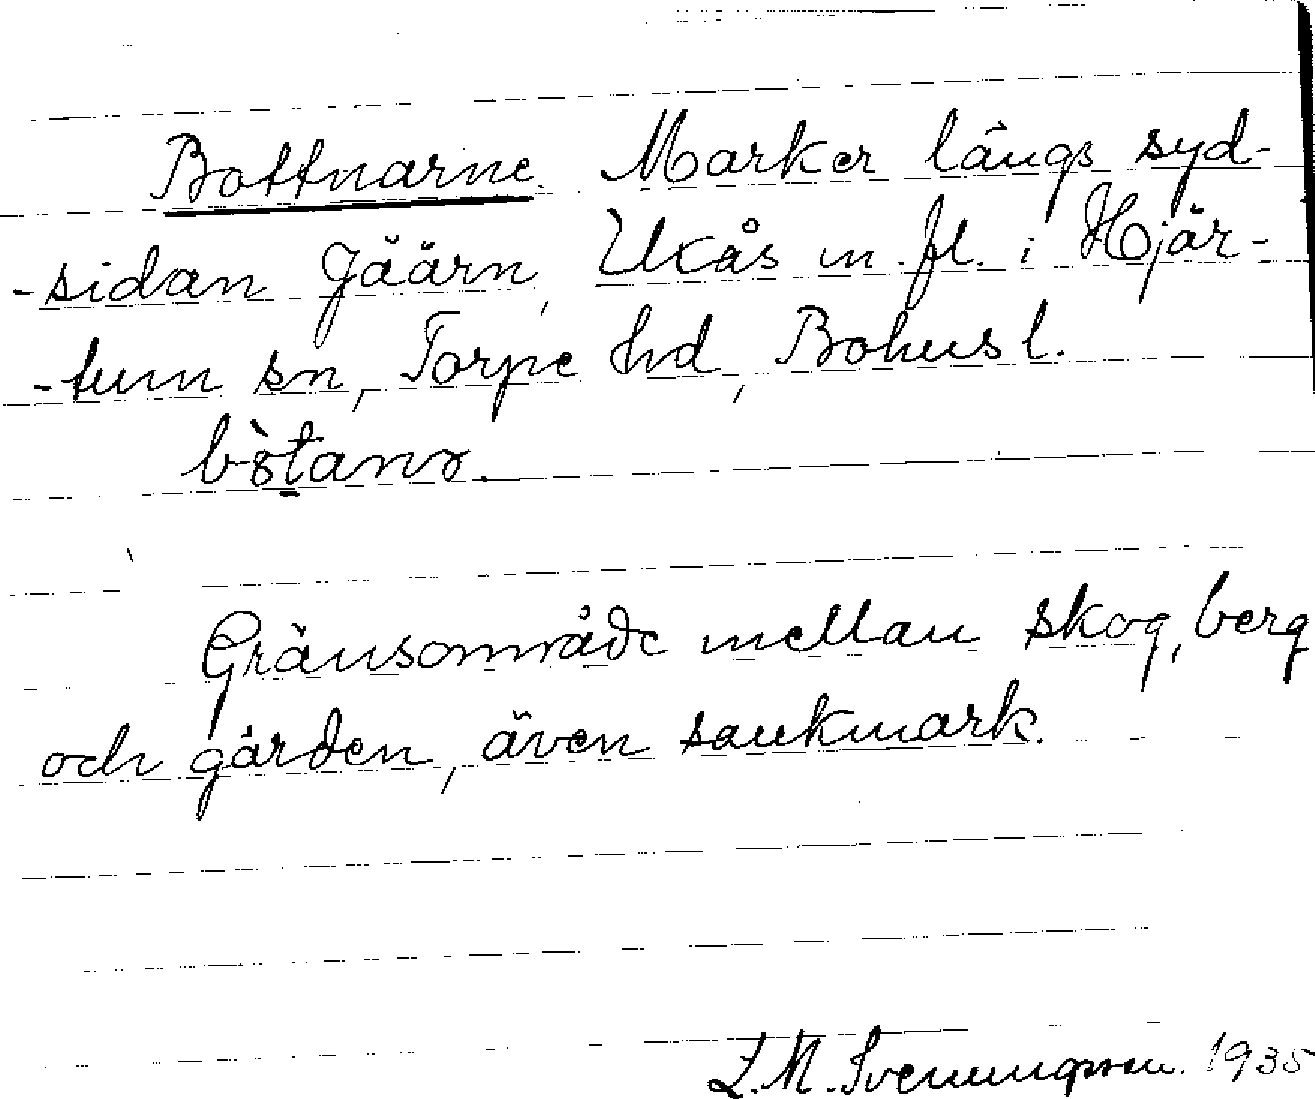 Bottnarne. Marker längs syd-
-sidan Gäärn, Ukås m. fl. i Hjär-
-tum sn, Torpe hd, Bohusl.
Gränsområde mellan skog, berg
och gården, även sankmark.
L. M. Svenungsson. 1935